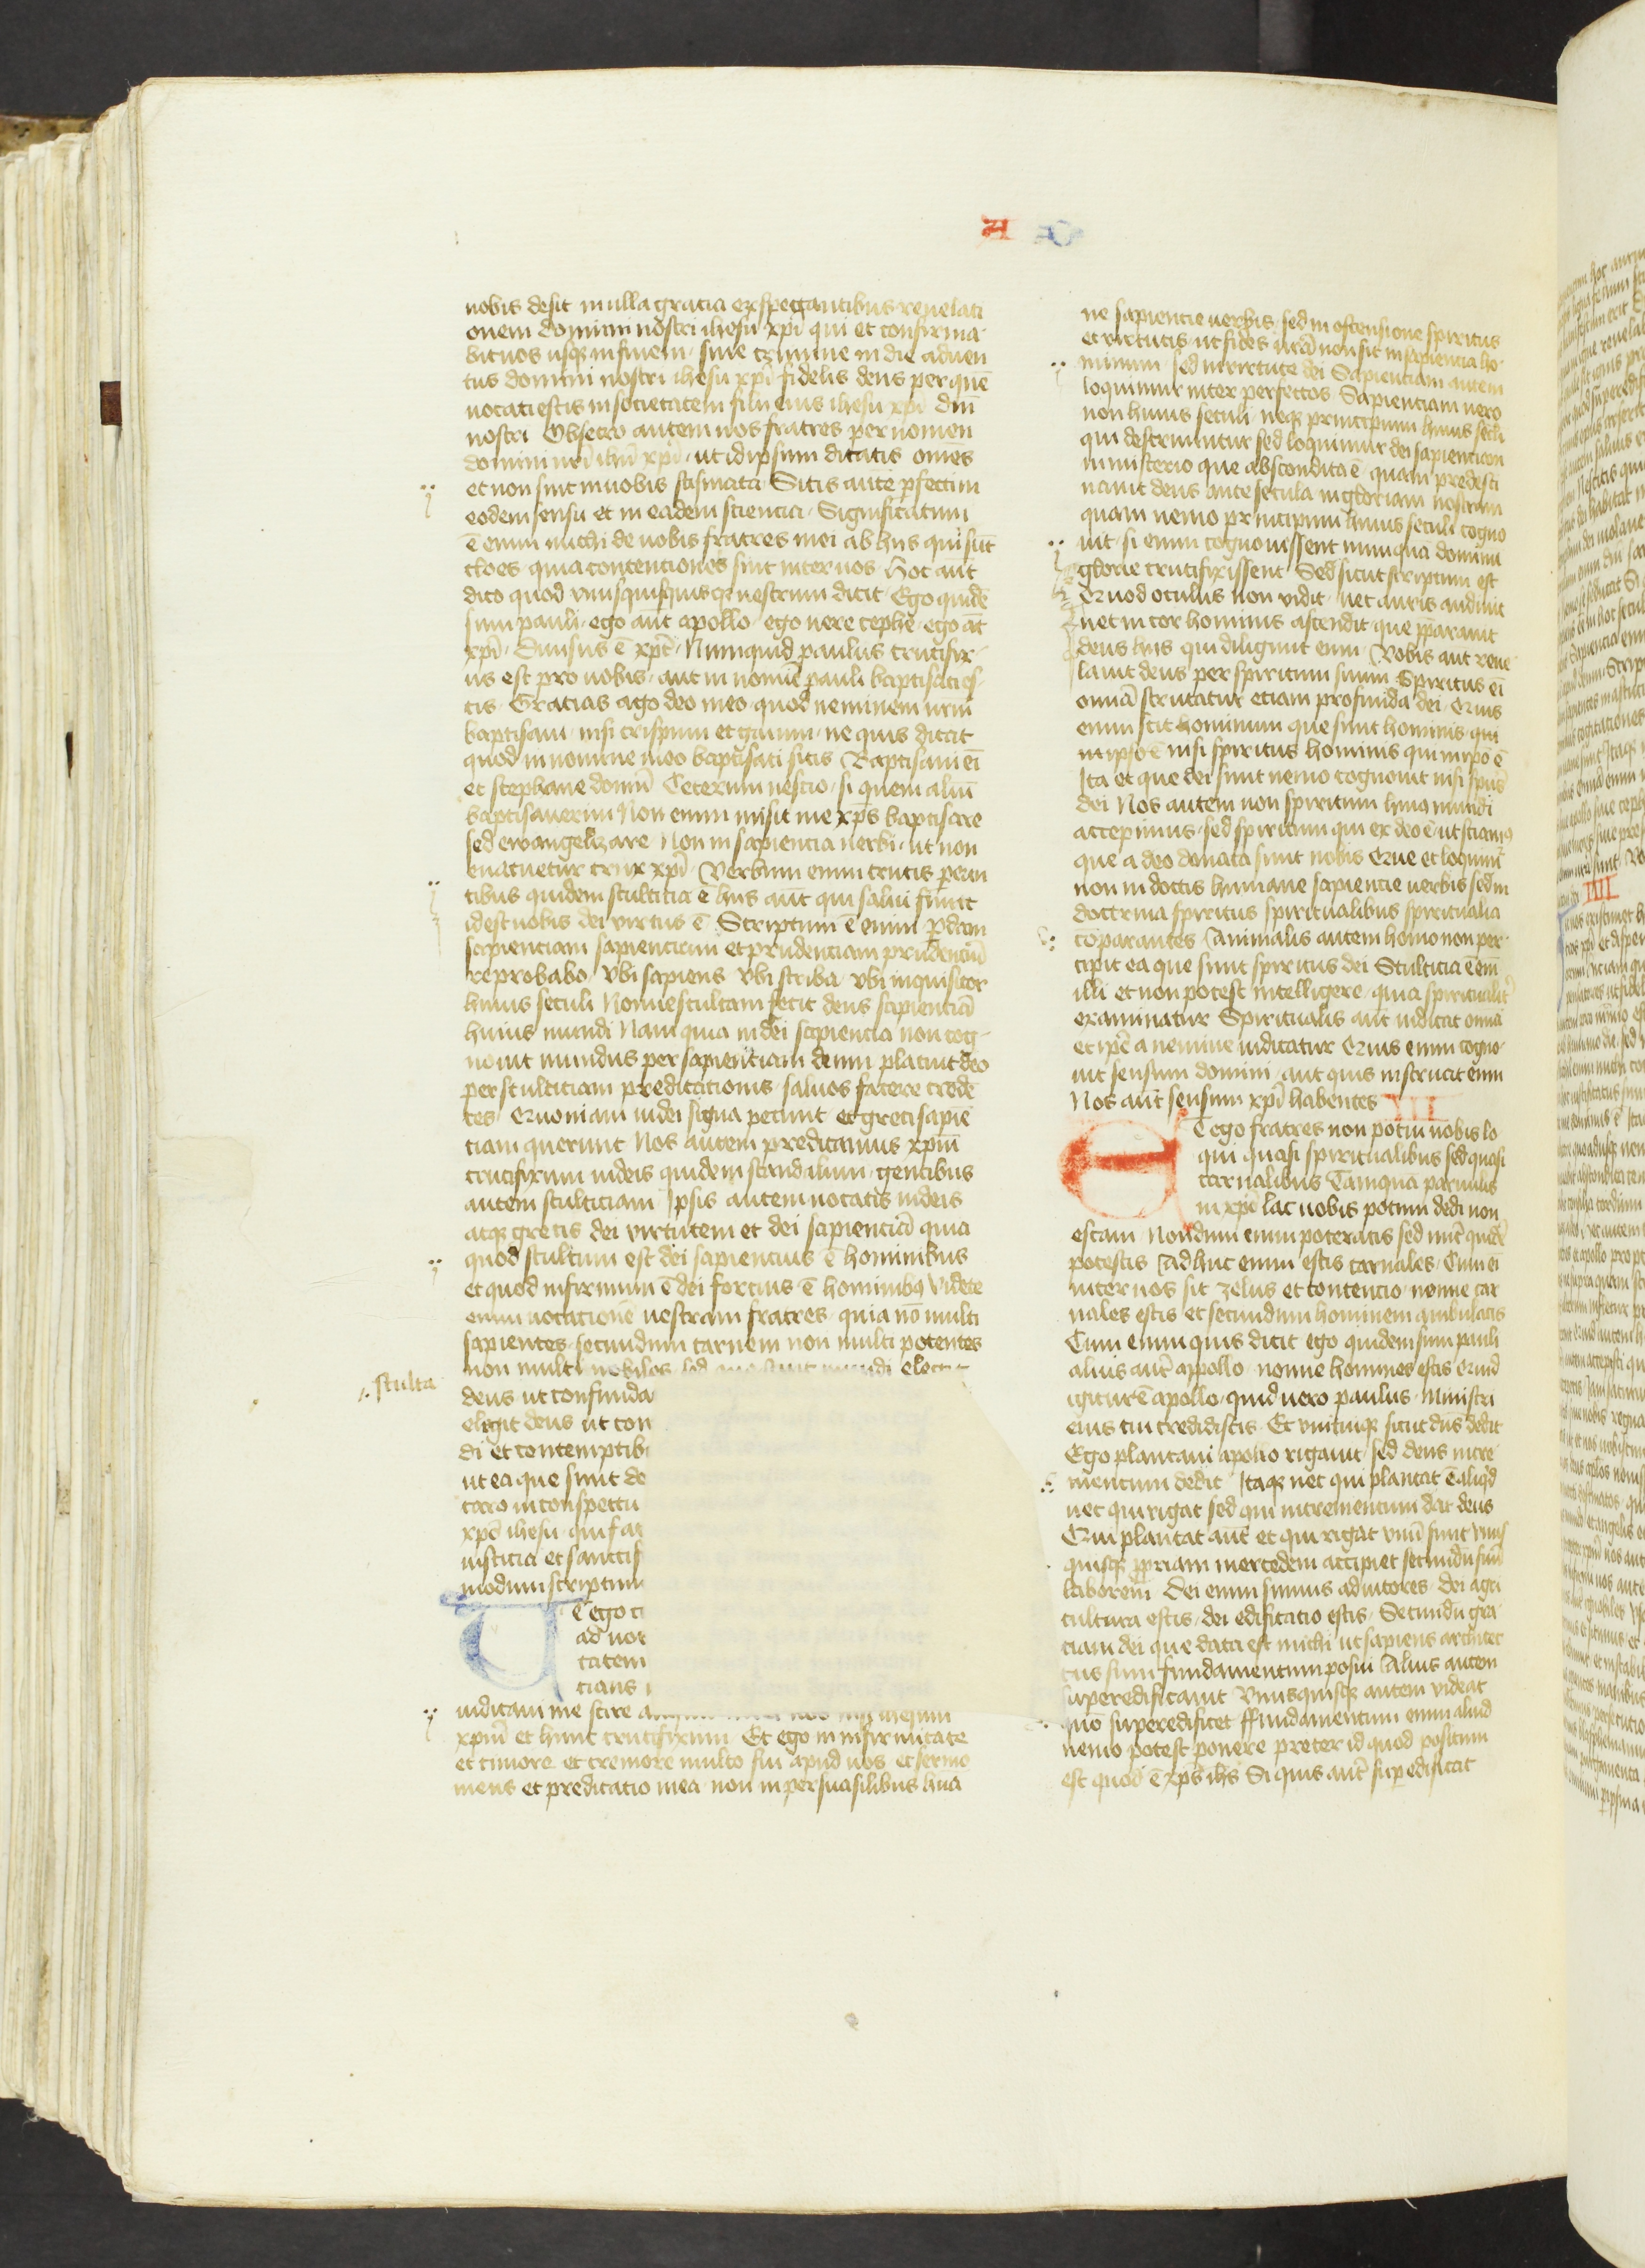 A Co
nobis desit in ulla gracia exspectantibus reuelati
onem domini nostri ihesu xpi qui et confirma
bit uos usq; in finem sine crimine in die aduen
tus domini nostri ihesu xpi fidelis deus per quē
uocati estis in societatem filii eius ihesu xpi dn̄i
nostri Obsecro autem uos fratres per nomen
domini nr̄i ihū xpi ut idipsum dicatis omēs
et non sint in uobis scismata Sitis autē ꝑfecti in
eodem sensu et in eadem sciencia Significatum
ē enim michi de uobis fratres mei ab hiis qui sūt
cloes quia contentiones sint inter uos Hoc aūt
dico quod vnusquisq; uestrum dicit Ego quidē
sum pauli ego aūt apollo ego uero cephe ego āt
xpi Diuisus ē xpc̄ Numquid paulus crucifix
us est pro uobis aut in nomīe pauli baptisati es
tis Gracias ago deo meo quod neminem urm̄
baptisaui nisi crispum et gaium ne quis dicat
quod in nomine meo baptisati sitis Baptisaui eī
et stephane domū Ceterum nescio si quem aliū
baptisauerim Non enim misit me xp̄s baptisare
sed ewangelizare Non in sapiencia uerbi ut non
euacuetur crux xpi Verbum enim crucis pereū
tibus quidem stulticia ē hiis aūt qui salui fiunt
id est nobis dei virtus ē Scriptum ē enim ꝑdam
sapienciam sapiencium et prudenciam prudenciū
reprobabo vbi sapiens vbi scriba vbi inquisitor
huius seculi Nonne stultam fecit deus sapienciā
huius mundi Nam quia in dei sapiencia non cog
nouit mundus per sapienciam deum placuit deo
per stulticiam predicationis saluos facere credē
tes Quoniam iudei signa petunt et greci sapiē
ciam querunt Nos autem predicamus xpm̄
crucifixum iudeis quidem scandalum gentibus
autem stulticiam Ipsis autem uocatis iudeis
atq; grecis dei virtutem et dei sapienciā quia
quod stultum est dei sapiencius ē hominibus
et quod infirmum ē dei forcius ē hominibꝰ Videte
enim uocacionē uestram fratres quia nō multi
sapientes secundum carnem non multi potentes
non multi nobiles sed que mundi elegit
stulta
deus ut confunda
elegit deus ut con
di et contemptib
ut ea que sunt de
caro in conspectu
xpō ihesu qui fac
iusticia et sanctif
modum scriptum
ET ego cū
ad uos
tatem
cians
iudicaui me scire
xpm̄ et hunc crucifixum Et ego in infirmitate
et timore et tremore multo fui apud uos et sermo
meus et predicatio mea non in persuasilibus hua
ne sapiencie uerbis sed in ostensione spiritus
et virtutis ut fides urā non sit in sapiencia ho
minum sed in virtute dei Sapienciam autem
loquimur inter perfectos Sapienciam uero
non huius seculi neq; principum huius secli
qui destruuntur sed loquimur dei sapienciam
in misterio que abscondita ē quam predesti
nauit deus ante secula in gloriam nostram
quam nemo principum huius seculi cogno
uit si enim cognouissent numquā dominū
glorie crucifixissent Sed sicut scriptum est
Quod oculus non vidit nec auris audiuit
nec in cor hominis ascendit que p̄parauit
deus hiis qui diligunt eum Nobis aut reue
lauit deus per spiritum suum Spiritus eī
omīa scrutatur etiam profunda dei Quis
enim scit hominum que sunt hominis qui
in ipso ē nisi spiritus hominis qui in ip̄o ē
Ita et que dei sunt nemo cognouit nisi sp̄us
dei Nos autem non spiritum huiꝰ mundi
accepimus sed spiritum qui ex deo ē ut sciamꝰ
que a deo donata sunt nobis Que et loquimr̄
non in doctis humane sapiencie uerbis sed in
doctrina spiritus spiritualibus spiritualia
cōparantes Animalis autem homo non per
cipit ea que sunt spiritus dei Stulticia ē em̄
illi et non potest intelligere quia spiritualitr̄
examinatur Spiritualis aūt iudicat omīa
et ip̄e a nemine iudicatur Quis enim cogno
uit sensum domini aut quis instruxit eum
Nos aūt sensum xpi habentes III
ET ego fratres non potui uobis lo
qui quasi spiritualibus sed quasi
carnalibus Tamquā paruulis
in xpō lac uobis potum dedi non
escam Nondum enim poteratis sed nūc quidē
potestis Adhuc enim estis carnales Cum eī
inter uos sit zelus et contencio nonne car
nales estis et secundum hominem ambulatis
Cum enim quis dicit ego quidem sum pauli
alius aūt appollo nonne homines estis Quid
igitur ē apollo quid uero paulus Ministri
eius cui credidistis Et vnicuiq; sicut dn̄s dedit
Ego plantaui apollo rigauit sed deus incre
mentum dedit Itaq; nec qui plantat ē aliq̄d
nec qui rigat sed qui incrementum dat deus
Qui plantat aūt et qui rigat vnū sunt vnus
quisq; ꝓpriam mercedem accipiet secundū suū
laborem Dei enim sumus adiutores dei agri
cultura estis dei edificatio estis Secundū gra
ciam dei que data est michi ut sapiens architec
tus fundamentum posui Alius autem
superedificauit Vnusquisq; autem videat
quō superedificet ffundamentum enim aliud
nemo potest ponere preter id quod positum
est quod ē xp̄s ihs Si quis aūt sup̄edificat
IIII